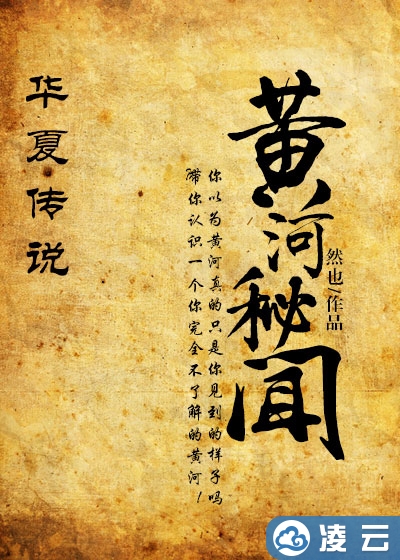 华夏传说
黄河秘闻
然也/作品
你以为黄河真的只是你见到的样子吗
带你认识一个你完全不了解的黄河！
凌云